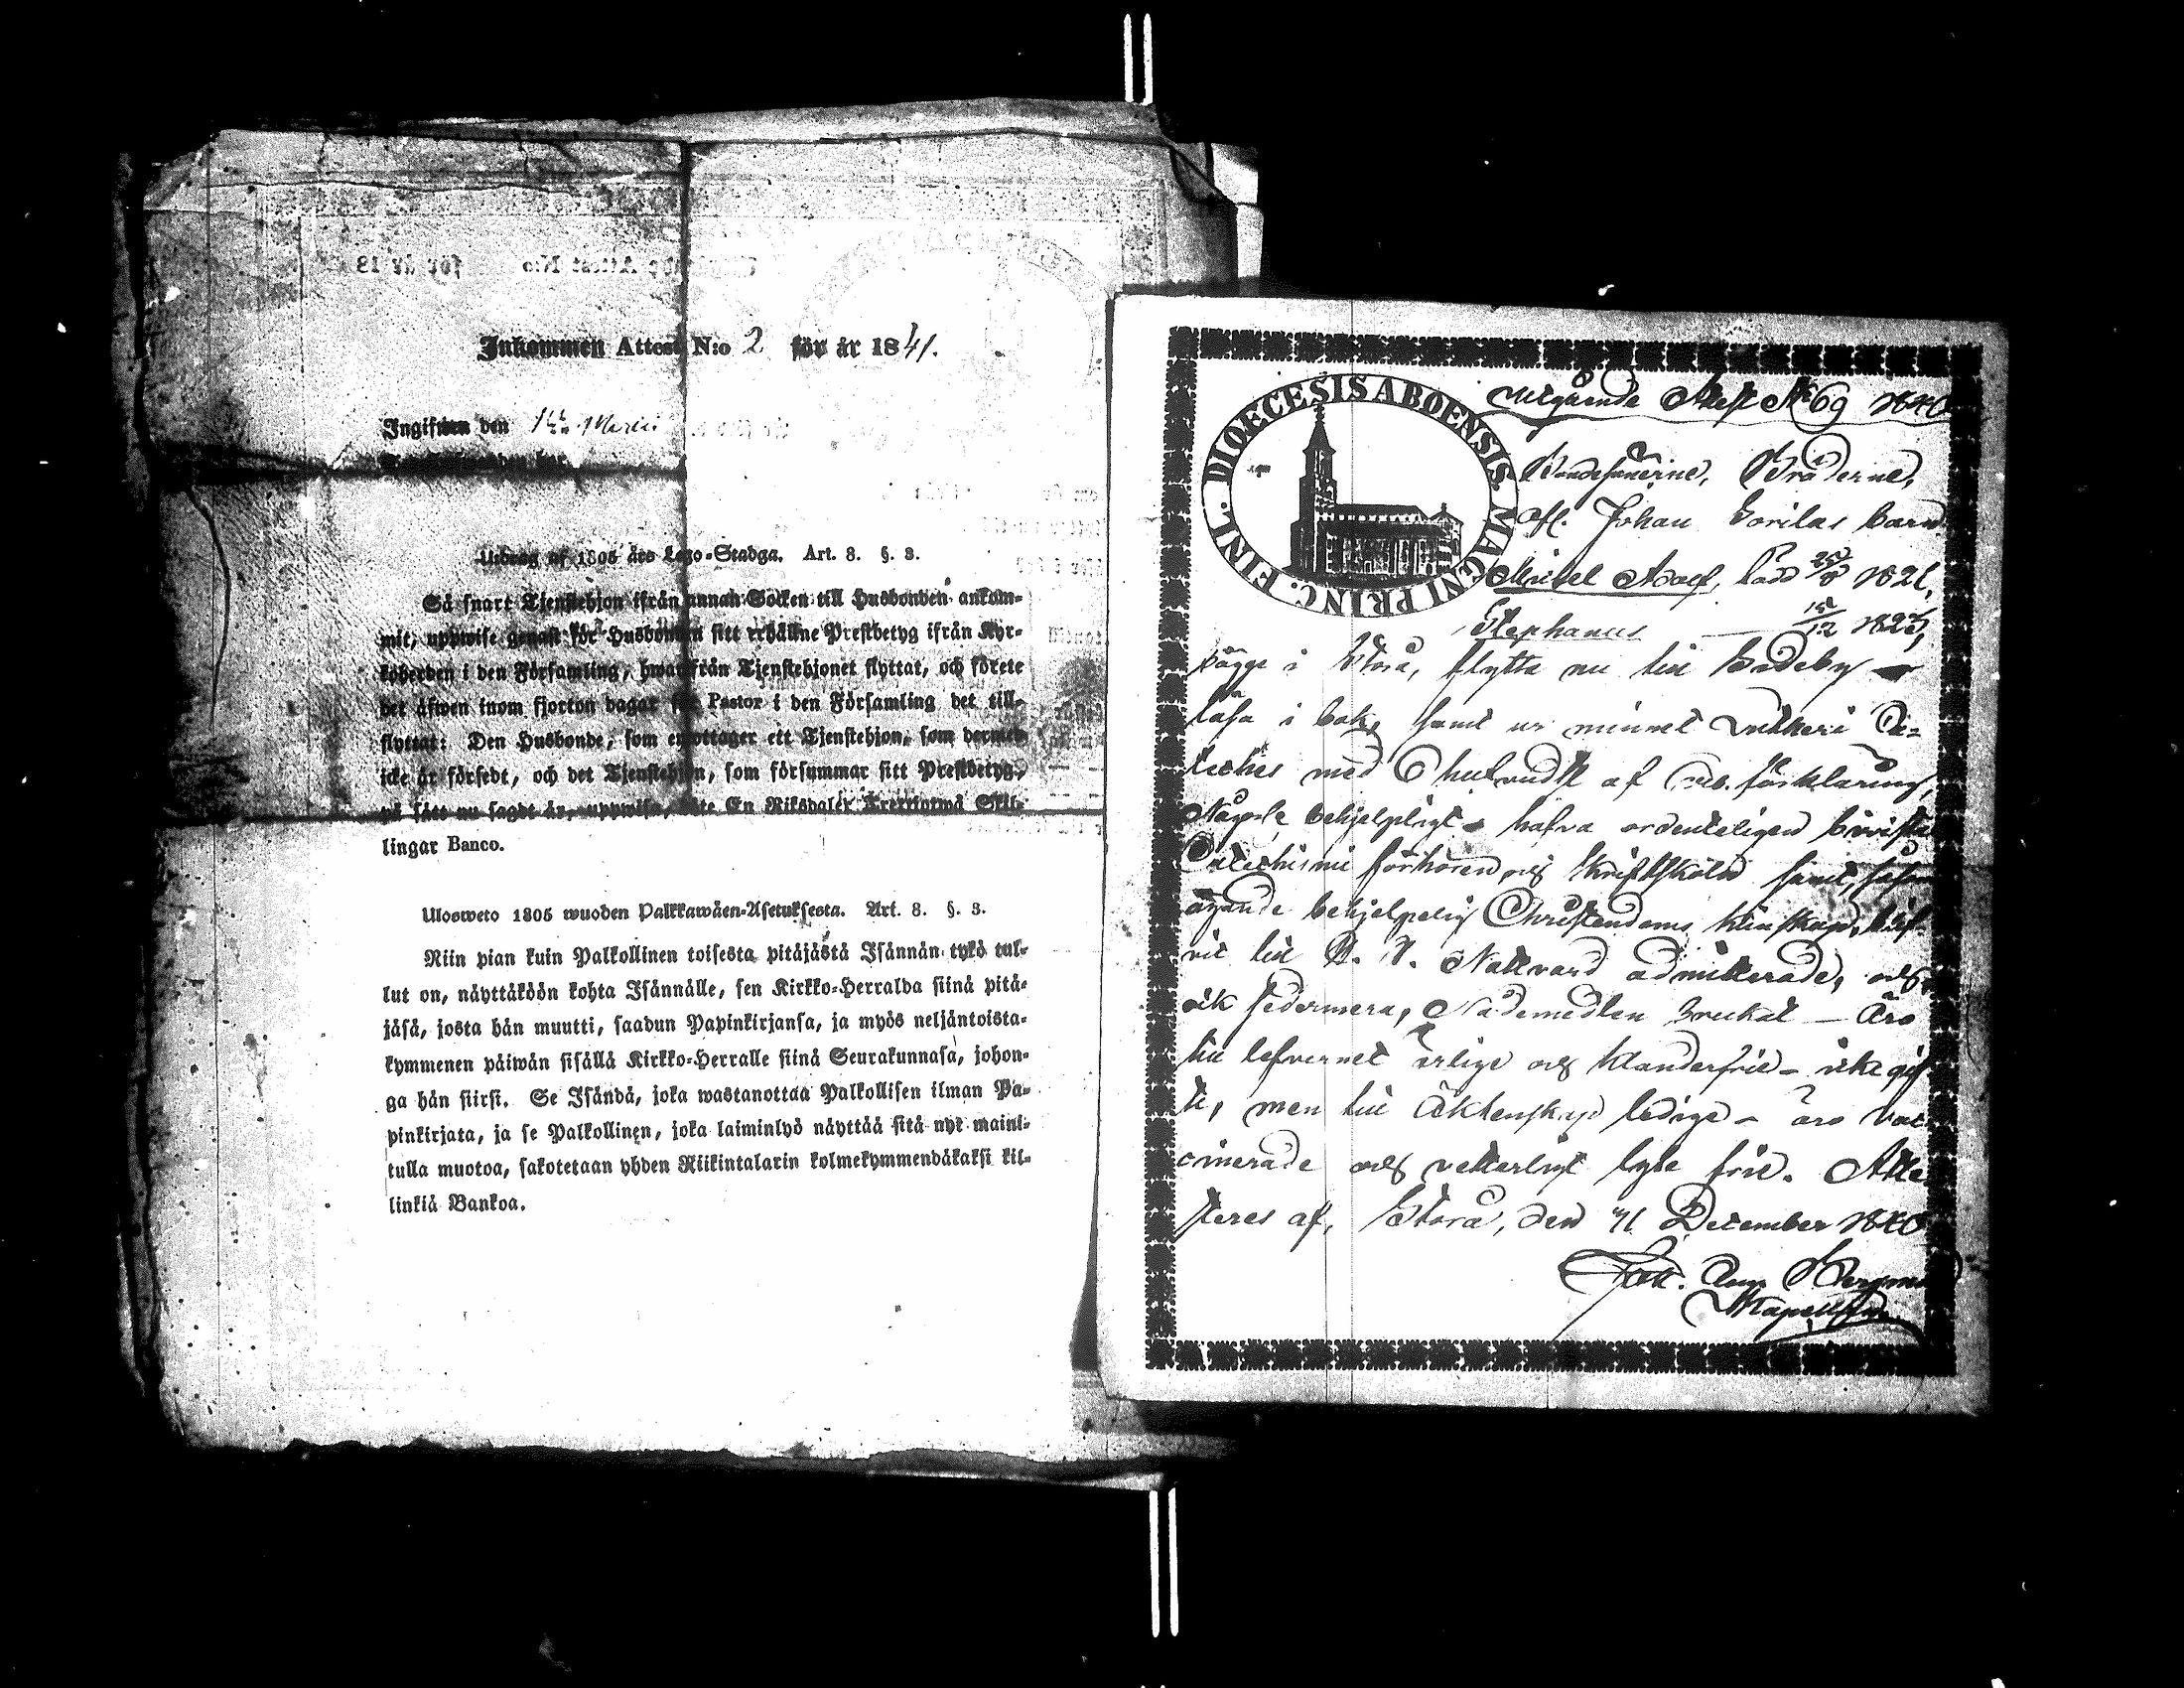 Inkommen Attest N:o 2 för år 1841.
Ingifwen den Martii
Utdrag af 1805 års Lego-Stadga. Art. 8. §. 3.
Så snart Tjenstehjon ifrån annan Socken till Husbonden ankom-
mit, uppwise genast för Husbonden sitt erhållne Prestbetyg ifrån Kyr-
koherden i den Församling, hwarifrån Tjenstehjonet flyttat, och förete
det äfwen inom fjorton dagar för Pastor i den Församling det till-
flyttat: Den Husbonde, som emottager ett Tjenstehjon, som dermed
icke är försedt, och det Tjenstehjon, som försummar sitt Prestbetyg,
på sätt nu sagdt är, uppwisa, böte En Riksdaler Trettiotwå Skil-
lingar Banco.
Ulosweto 1805 wuoden Palkkawäen-Asetuksesta. Art. 8. §. 3.
Niin pian kuin Palkollinen toisesta pitäjästä Isännän tykö tul-
lut on, näyttäköön kohta Isännälle, sen Kirkko-Herralda siinä pitä-
jäsä, josta hän muutti, saadun Papinkirjansa, ja myös neljäntoista-
kymmenen päiwän sisällä Kirkko-Herralle siinä Seurakunnasa, johon-
ga hän siirsi. Se Isändä, joka wastanottaa Palkollisen ilman Pa-
pinkirjata, ja se Palkollinen, joka laiminlyö näyttää sitä nyt maini-
tulla muotoa, sakotetaan yhden Riikintalarin kolmekymmendäkaksi kil-
linkiä Bankoa.
DIOECESIS ABOENSIS. MAGNI PRINC. FINL.
Utgående Attest No 69 1840
Bondesönerne, Bröderne,
Johan barn
Michel Adolf, född 25/8 1821,
Stephanus — 15/12 1823,
bägge i Storå, flytta nu till
läsa i bok, samt ur minnet Lutheri Ca-
teches med hufvudst. af förklaring,
Någorl. behjelpligt – hafva ordenteligen bivistat
Catechismi förhören och Skriftskolan samt, såsom
ägande behjelpelig Christendoms kunskap, blif-
vit till H. H. Nattvard admitterade, och
ock sedermera, Nådemedlen brukat – Äro
till lefvernet ärlige och klanderfrie – icke gif-
te, men till Äktenskap ledige – äro vac-
cinerade och vetterligt lyte frie. Atte-
steras af, Storå, den 31 December 1840
Aug. Bergman
Kapellan